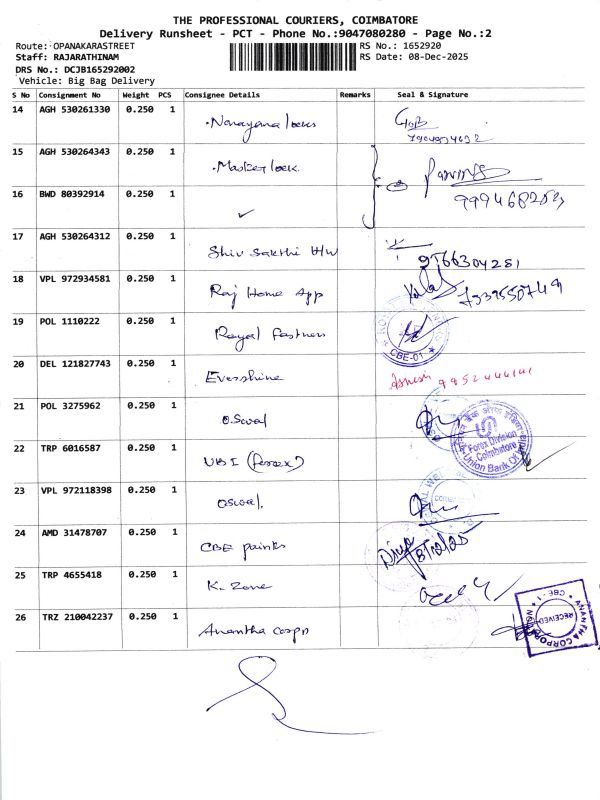 THE PROFESSIONAL COURIERS, COIMBATORE
Delivery Runsheet - PCT - Phone No.:9047080280 - Page No.:2
Route: OPANAKARASTREET
RS No.: 1652920
Staff: RAJARATHINAM
RS Date: 08-Dec-2025
DRS No.: DCJB165292002
Vehicle: Big Bag Delivery
S No Consignment No Weight PCS Consignee Details Remarks Seal & Signature
14 AGH 530261330 0.250 1 Narayana locks
15 AGH 530264343 0.250 1 Master lock
16 BWD 80392914 0.250 1 ✓
17 AGH 530264312 0.250 1 Shiv Sakthi H/W 9566304281
18 VPL 972934581 0.250 1 Raj Home App
19 POL 1110222 0.250 1 Royal Fastners CBE-01
20 DEL 121827743 0.250 1 Evershine 9952444141
21 POL 3275962 0.250 1 Oswal
22 TRP 6016587 0.250 1 UBI (forex) Forex Division Coimbatore Union Bank Of India
23 VPL 972118398 0.250 1 Oswal.
24 AMD 31478707 0.250 1 CBE paints Divya
25 TRP 4655418 0.250 1 K. Zone
26 TRZ 210042237 0.250 1 Anantha Corpn ANANTHA CORPORATION RECEIVED CBE-1